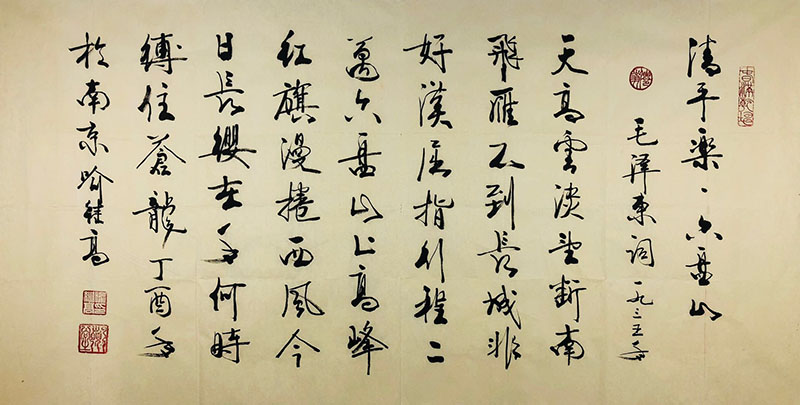 清平樂、六盘山
毛澤東詞 一九三五年
天高雲淡望断南
飛雁不到長城非
好漢屈指行程二
萬六盘山上高峰
红旗漫捲西風今
日長纓在手何時
縛住蒼龍丁酉年
於南京喻継高